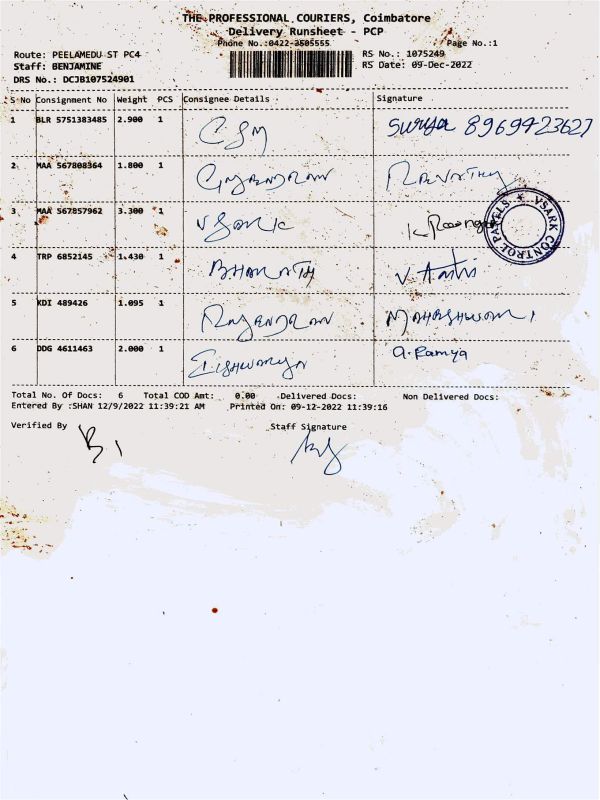 THE PROFESSIONAL COURIERS, Coimbatore
Delivery Runsheet - PCP
Phone No.:0422-3505555
Page No.:1
Route: PEELAMEDU ST PC4
RS No.: 1075249
Staff: BENJAMINE
RS Date: 09-Dec-2022
DRS No.: DCJB107524901
S No Consignment No Weight PCS Consignee Details Signature
1 BLR 5751383485 2.900 1 CSM Surya 8969423627
2 MAA 567808364 1.800 1 Revathy
3 MAA 567857962 3.300 1 V Sark
VSARK CONTROL PANELS
4 TRP 6852145 1.430 1 Bharath
5 KDI 489426 1.095 1 Rajendran Maheshwari
6 DDG 4611463 2.000 1 Eishwarya a. Ramya
Total No. Of Docs: 6 Total COD Amt: 0.00 Delivered Docs: Non Delivered Docs:
Entered By :SHAN 12/9/2022 11:39:21 AM Printed On: 09-12-2022 11:39:16
Verified By Staff Signature